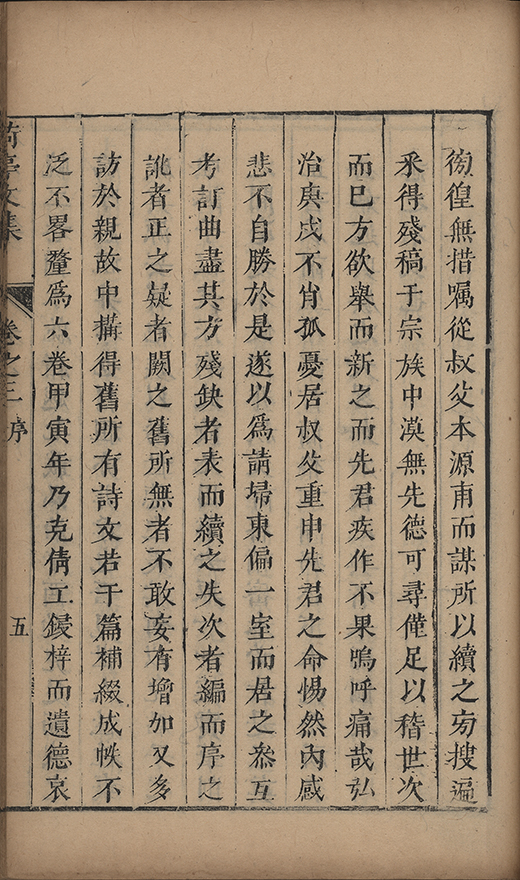 徬徨無措嘱從叔父本源甫而謀所以續之旁搜遍
釆得殘稿于宗族中漠無先德可尋僅足以稽世次
而已方欲舉而新之而先君疾作不果嗚呼痛哉弘
治庚戌不肖孤憂居叔父重申先君之命惕然內感
悲不自勝於是遂以爲請埽東偏一室而居之叅互
考訂曲盡其方殘缺者表而續之失次者編而序之
訛者正之疑者闕之舊所無者不敢妄有增加又多
訪於親故中搆得舊所有詩文若干篇補綴成帙不
泛不畧釐爲六卷甲寅年乃克倩工鋟梓而遺德哀
荷亭文集 卷之三 序 五